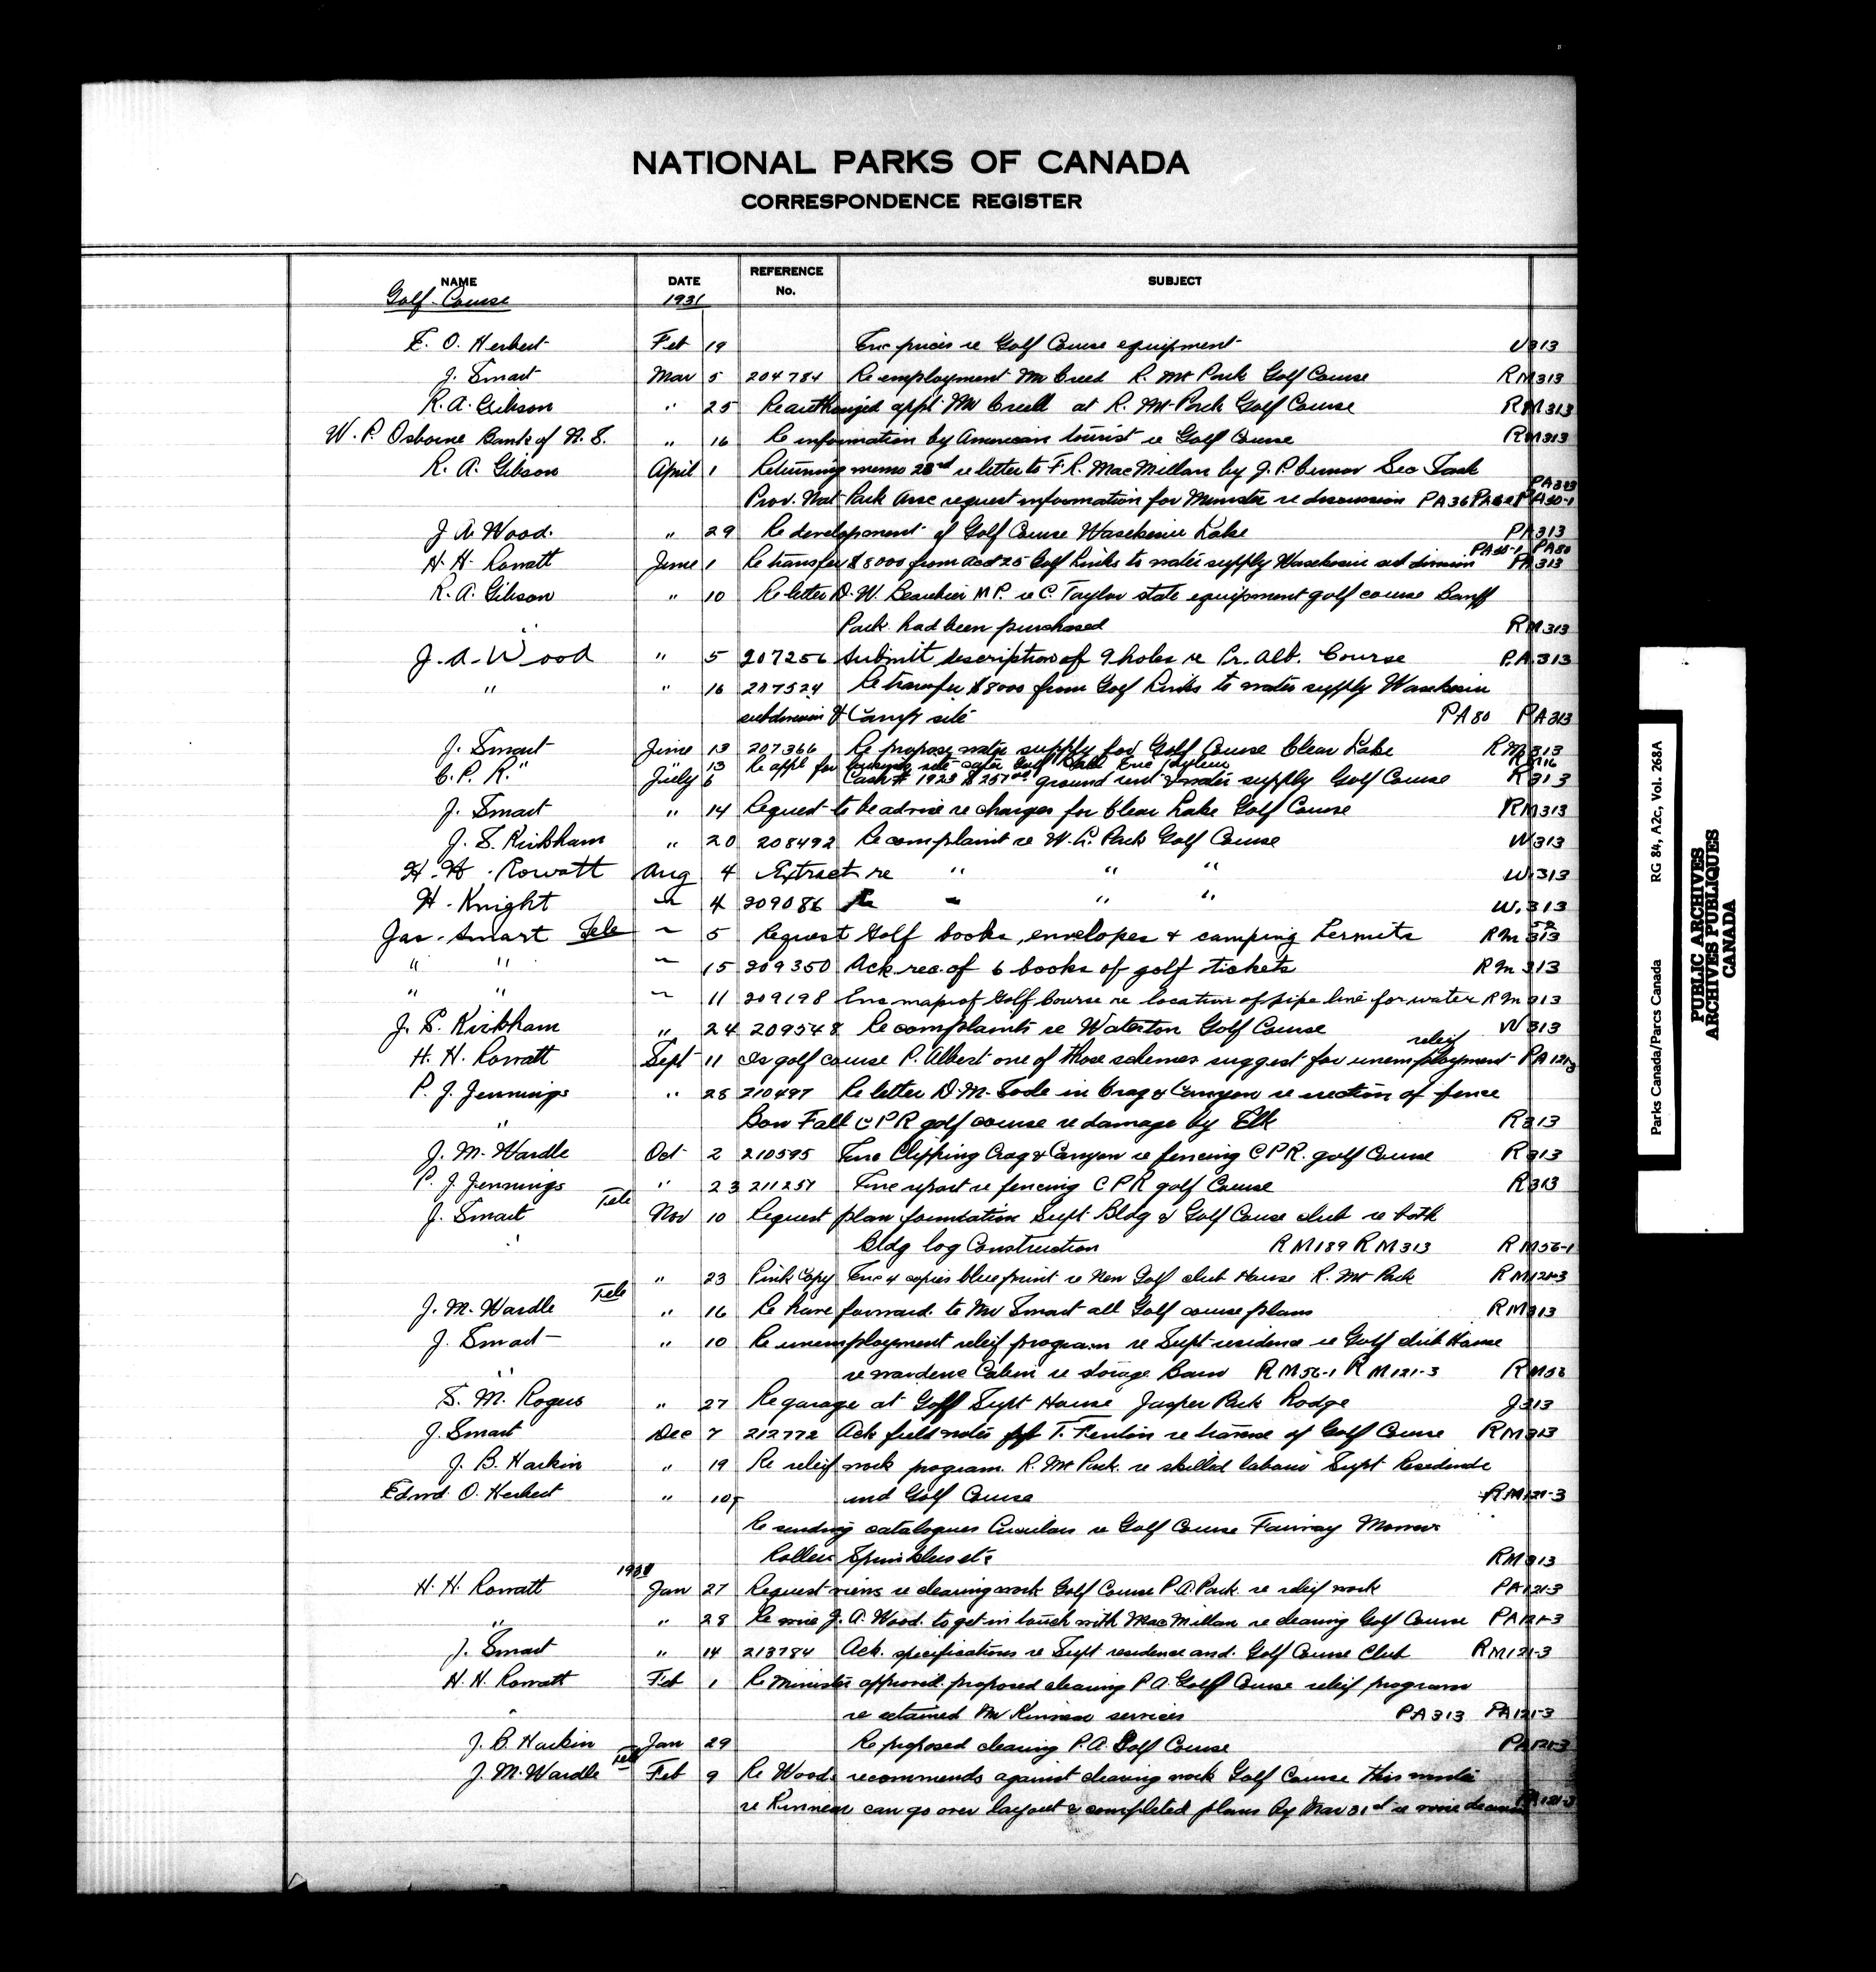 NATIONAL PARKS OF CANADA
CORRESPONDENCE REGISTER
NAME DATE REFERENCE No. SUBJECT
Golf Course 1931
E. O. Herbert Feb 19 Enc prices re Golf Course equipment U313
J. Smart Mar 5 204784 Re employment Mr Creed R. Mt Park Golf Course RM313
R. A. Gibson " 25 Re authorized appt. Mr at R. Mt Park Golf Course RM313
W. P. Osborne Bank of N. S. " 16 Re information by American tourist re Golf Course RM313
R. A. Gibson April 1 Returning memo 28rd re letter to F R. MacMillan by J. P. Sec Sask PA313
Prov. Nat Park Assc request information for Minister re discussion PA36 PA30-1
J. A. Wood. " 29 Re development of Golf Course Waskesiu Lake PA313
H. H. Rowatt June 1 Re transfer $8000 from Golf Links to water supply Waskesiu sub division PA30-1 PA80 PA313
R. A. Gibson " 10 Re letter D. W. Beaubier M P. re C. Taylor state equipment golf course Banff
" Park had been purchased RM313
J. A. Wood " 5 207256 Submit description of 9 holes re Pr. Alb. Course P.A 313
" " 16 207524 Re transfer $8000 from Golf Links to water supply Waskesiu
subdivision & Camp site PA80 PA313
J. Smart June 13 207366 Re propose water supply for Golf Course Clear Lake RM313
" 13 Re appl for site Golf
C. P. R. July 6 Cash # 1923 ground rent & water supply Golf Course R313
J. Smart " 14 Request to be advise re charges for Clear Lake Golf Course RM313
J. S. Kirkham " 20 208492 Re complaint re W. L. Park Golf Course W313
H. H. Rowatt Aug 4 Extract re " " " W.313
H. Knight " 4 209086 Re " " " W.313
Jas. Smart Tele " 5 Request Golf books, envelopes & camping Permits Rm 313
" " " 15 209350 Ack rec. of 6 books of golf tickets Rm 313
" " " 11 209198 Enc map of Golf Course re location of pipe line for water Rm 313
J. S. Kirkham " 24 209548 Re complaints re Waterton Golf Course W313
H. H. Rowatt Sept 11 Is golf course P. Albert one of those schemes suggest for unemployment relief PA 121-3
P. J. Jennings " 28 210497 Re letter D. M. Soole in Crag & Canyon re erection of fence
" Bow Fall C P R golf course re damage by Elk R313
J. M. Wardle Oct 2 210595 Enc Clipping Crag & Canyon re fencing C P R. golf Course R313
P. J. Jennings " 23 211257 Enc report re fencing C P R golf Course R313
J. Smart Tele Nov 10 Request plan foundation Supt Bldg & Golf Couse club re both
" Bldg log Construction RM189 RM313 RM56-1
" 23 Pink Copy Enc 4 copies blue print re New Golf club House R. Mt Park RM121-3
J. M. Wardle Tele " 16 Re have forward. to Mr Smart all Golf course plans RM313
J. Smart " 10 Re unemployment releif program re Supt residence re Golf club House
" re wardens Cabin re storage Barn RM56-1 RM121-3 RM56
S. M. Rogers " 27 Re garage at Golf Supt House Jasper Park Lodge J313
J. Smart Dec 7 212772 Ack field notes T. Fenton re traverse of Golf Course RM313
J. B. Harkin " 19 Re releif work program. R. Mt Park. re skilled labour Supt Residende
Edwd. O. Herbert " 10 and Golf Course RM121-3
Re sending catalogues Circulars re Golf Course Fairway Mowers
Rollers Sprinklers etc RM313
H. H. Rowatt Jan 27 Request views re clearing work Golf Course P. A. Park re releif work PA121-3
" " 28 Re wire J. A. Wood. to get in touch with MacMillan re clearing Golf Course PA121-3
J. Smart " 14 213784 Ack. specifications re Supt residence and. Golf Course Club RM121-3
H. H. Rowatt Feb 1 Re Minister approved. proposed clearing P A. Golf Course releif program
" re retained Mr Kinnear services PA313 PA121-3
J. B. Harkin Jan 29 Re proposed clearing P. A. Golf Course PA121-3
J. M. Wardle Tele Feb 9 Re Wood. recommends against clearing work Golf Course this winter
re Kinnear can go over layout & completed plans by Mar 31st re wire decision PA121-3
Parks Canada/Parcs Canada RG 84, A2c, Vol. 268A
PUBLIC ARCHIVES
ARCHIVES PUBLIQUES
CANADA